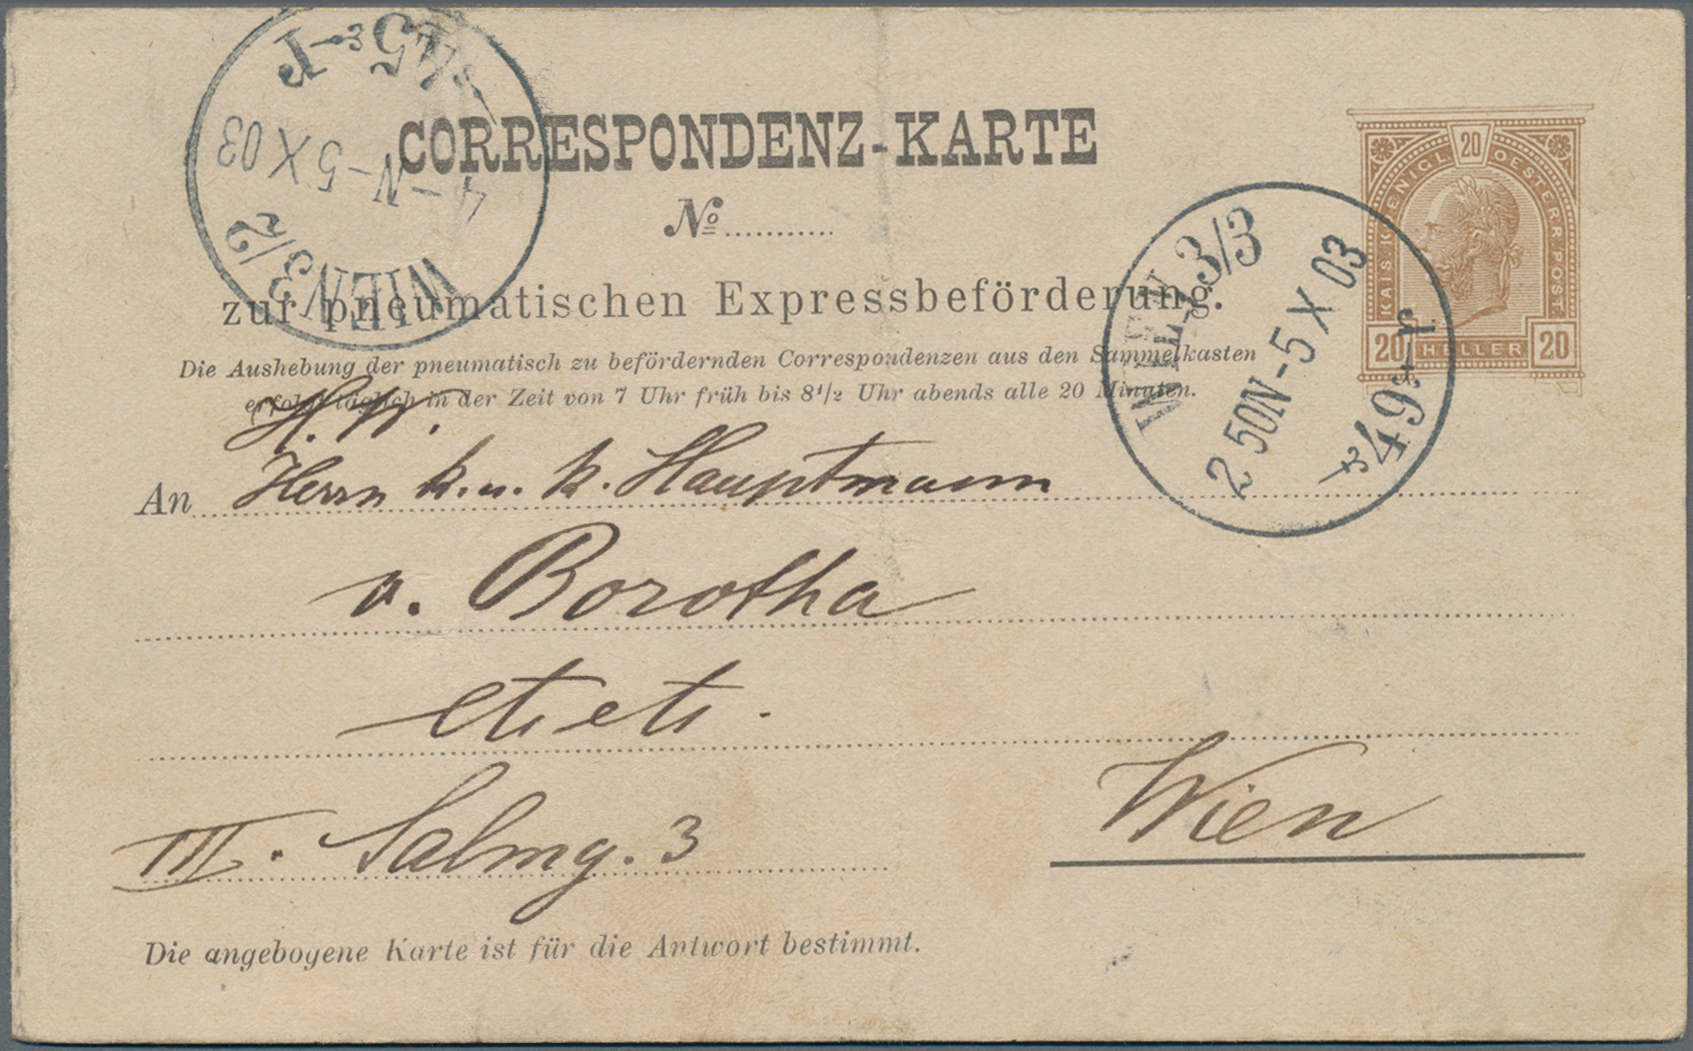 CORRESPONDENZ-KARTE
No
zur pneumatischen Expressbeförderung.
Die Aushebung der pneumatisch zu befördernden Correspondenzen aus den Sammelkasten
erfolgt täglich in der Zeit von 7 Uhr früh bis 8 1/2 Uhr abends alle 20 Minuten.
KAIS. KOENIGL. OESTERR. POST
20
20 HELLER 20
WIEN 3/2
4-N-5 X 03
WIEN 3/3
2 50N-5 X 03
*49e-r
An Herrn k. u. k. Hauptmann
v. Borotha
etc etc.
III. Salmg. 3
Wien
Die angebogene Karte ist für die Antwort bestimmt.